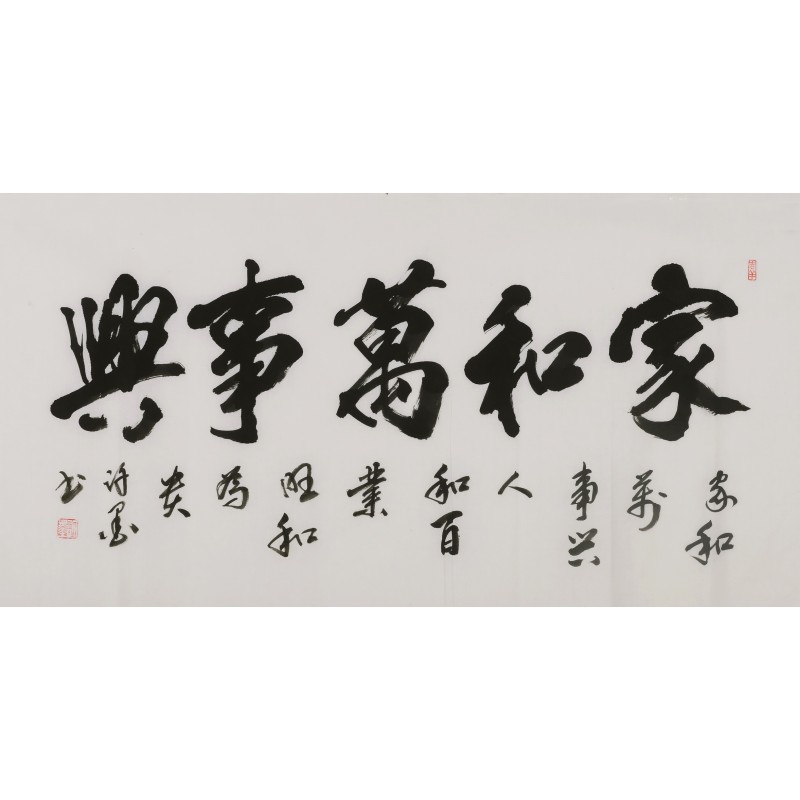 家和萬事興
家和萬事兴人和百業旺和為贵
许墨书